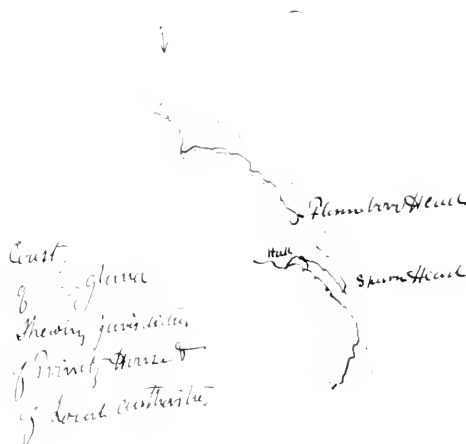 Flamboro Head
Hull
Spurn Head
Coast
of
Shewing jurisdiction
of Trinity House &
of Local authorities